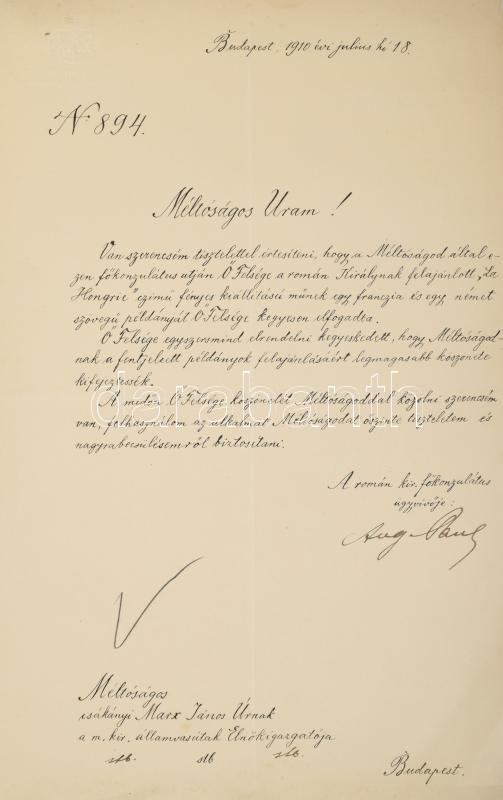 Budapest, 1910 évi julius hó 18.
№ 894.
Méltóságos Uram!
Van szerencsém tisztelettel értesiteni, hogy a Méltóságod által e-
zen főkonzulátus utján Ő Felsége a román Királynak felajánlott „La
Hongrie" czimü fényes kiállitásu műnek egy franczia és egy német
szövegü példányát Ő Felsége kegyesen elfogadta.
Ő Felsége egyszersmind elrendelni kegyeskedett, hogy Méltóságod-
nak a fentjelzett példányok felajánlásáért legmagasabb köszönete
kifejeztessék.
A midőn Ő Felsége köszönetét Méltóságoddal közölni szerencsém
van, felhasználom az alkalmat Méltóságodat őszinte tiszteletem és
nagyrabecsülésemről biztositani.
darabanth
A román kir. főkonzulátus
ügyvivője:
Aug. Paul
Méltóságos
csákányi Marx János Úrnak
a m. kir. államvasútak Elnökigazgatója
stb. stb stb.
Budapest.